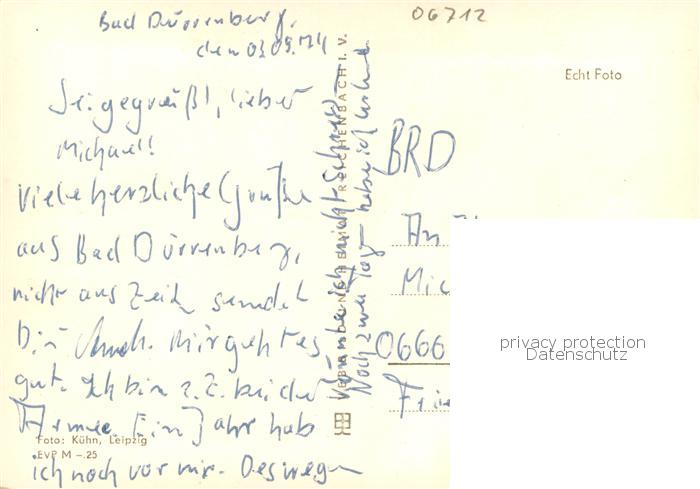 06712
Bad Dürrenberg,
den 03.09.74
Echt Foto
Sei gegrüßt, lieber
Michael!
BRD
Viele herzliche Grüße
aus Bad Dürrenberg,
nicht aus Zeitz sendet
Dir. Mir geht es
gut. Ich bin z.Z. bei der
Armee. Ein Jahr hab
ich noch vor mir. Deswegen
Noch zwei Tage habe ich Urlaub
VERBANDUNG REICHENBACH I. V.
An
Mic
0666
Frie
privacy protection
Datenschutz
Foto: Kühn, Leipzig
EVP M -.25